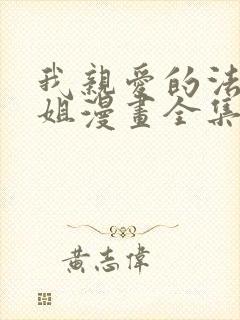 我親愛的法
姐漫畫全集
黃志偉